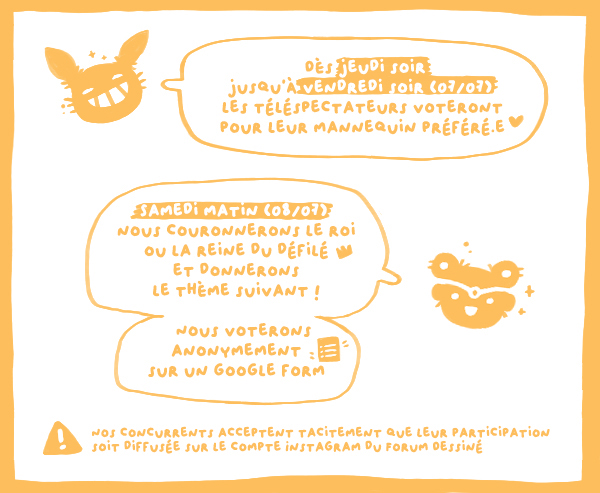 DÈS JEUDI SOIR
JUSQU'À VENDREDI SOIR (07/07)
LES TÉLÉSPECTATEURS VOTERONT
POUR LEUR MANNEQUIN PRÉFÉRÉ.E
SAMEDI MATIN (08/07)
NOUS COURONNERONS LE ROI
OU LA REINE DU DÉFILÉ
ET DONNERONS
LE THÈME SUIVANT !
NOUS VOTERONS
ANONYMEMENT
SUR UN GOOGLE FORM
! NOS CONCURRENTS ACCEPTENT TACITEMENT QUE LEUR PARTICIPATION
SOIT DIFFUSÉE SUR LE COMPTE INSTAGRAM DU FORUM DESSINÉ